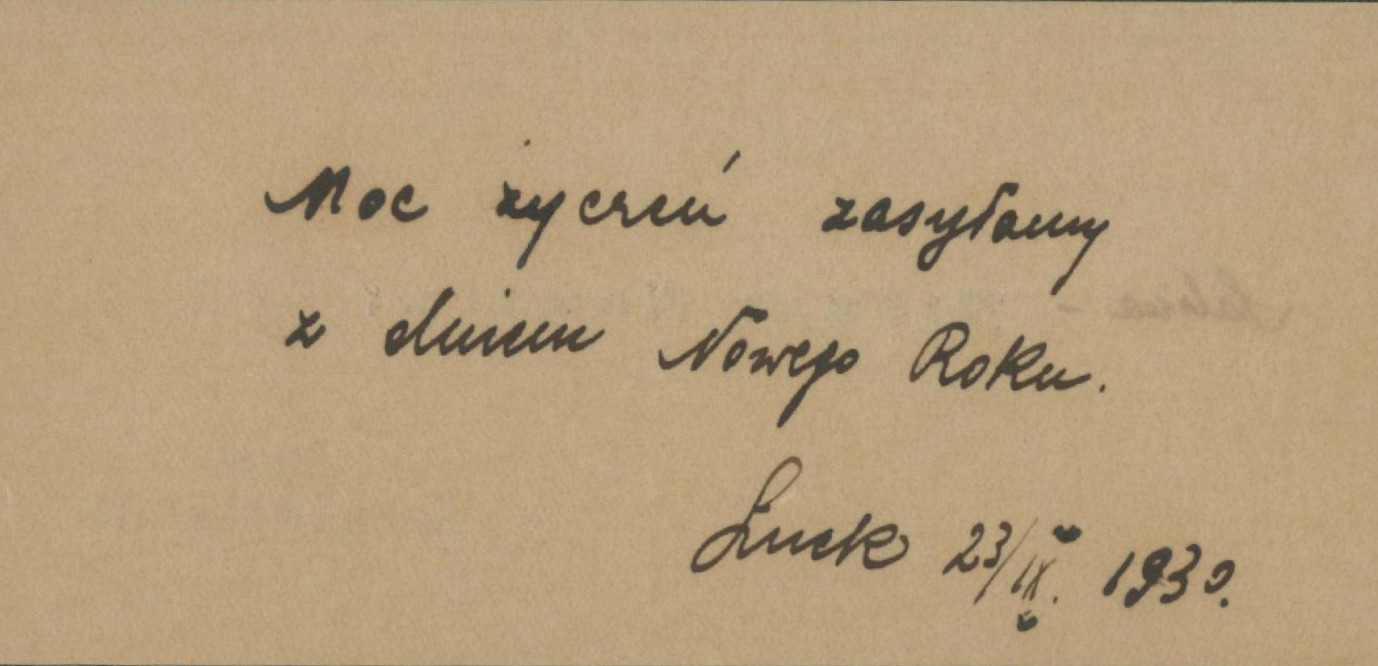 Moc życzeń zasyłamy
z dniem Nowego Roku.
Łuck 23/IX. 1930.